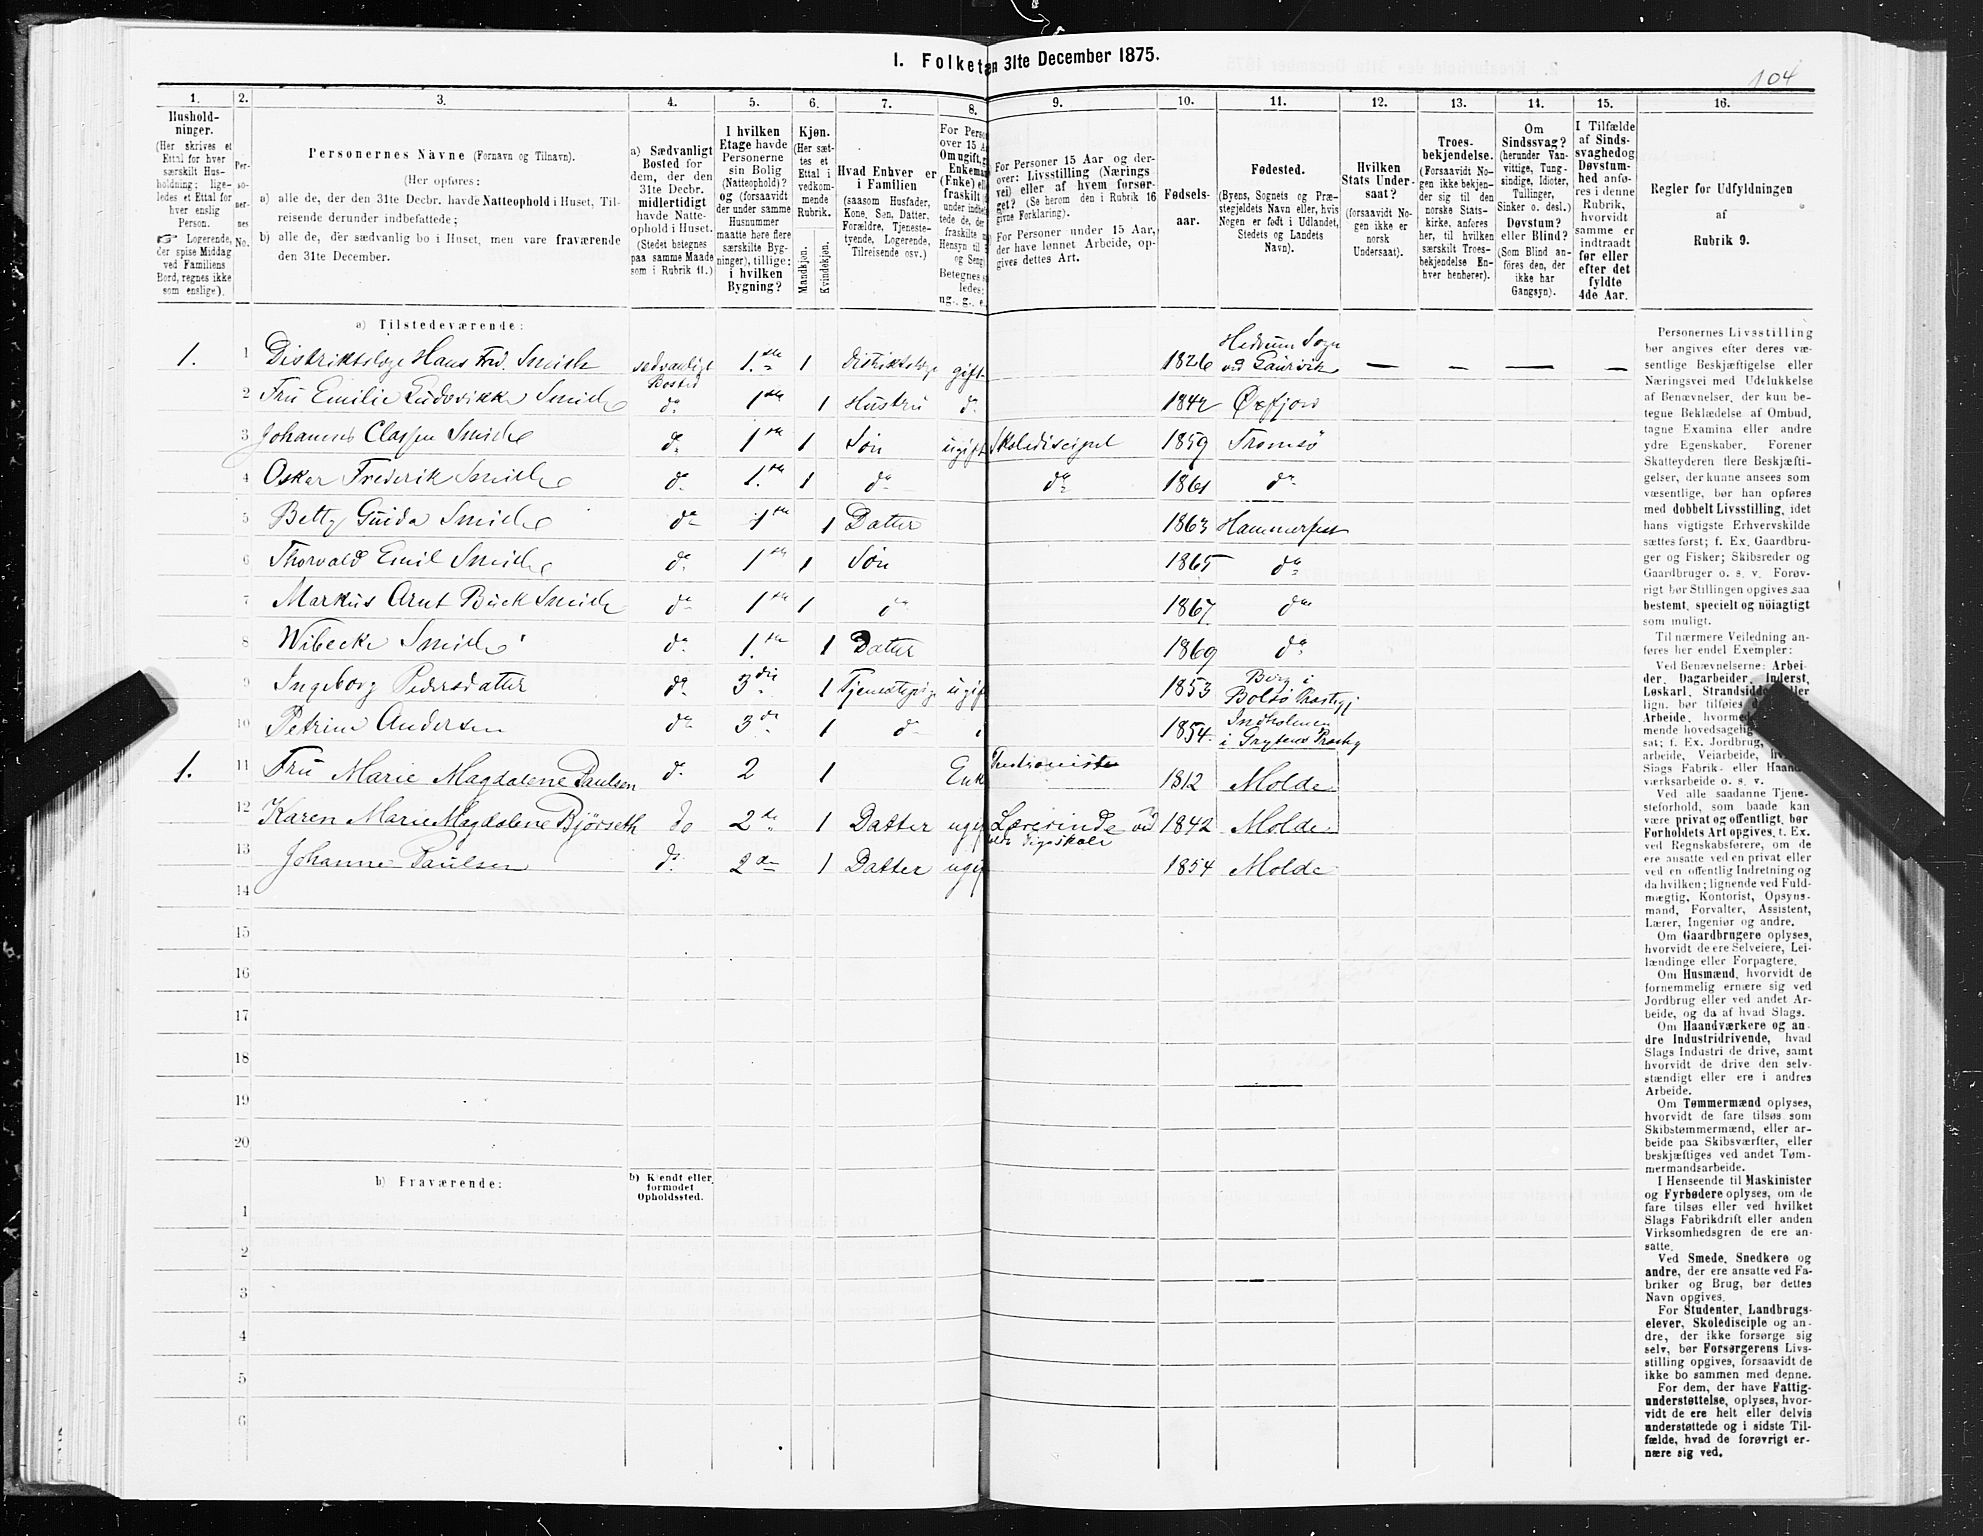 I. Folketæ
en 31te December 1875.
104
1. 2. 3. 4. 5. 6. 7. 8. 9. 10. 11. 12. 13. 14. 15. 16.
Hushold-
ninger.
(Her skrives et
Ettal for hver
særskilt Hus-
holdning; lige-
ledes et Ettal for
hver enslig
Person.
☞ Logerende,
der spise Middag
ved Familiens
Bord, regnes ikke
som enslige).
Per-
so-
ner-
nes
No.
Personernes Navne (Fornavn og Tilnavn).
(Her opføres:
a) alle de, der den 31te Decbr. havde Natteophold i Huset, Til-
reisende derunder indbefattede;
b) alle de, der sædvanlig bo i Huset, men vare fraværende
den 31te December.
a) Sædvanligt
Bosted for
dem, der den
31te Decbr.
midlertidigt
havde Natte-
ophold i Huset.
(Stedet betegnes
paa samme Maade
som i Rubrik 11.)
I hvilken
Etage havde
Personerne
sin Bolig
(Natteophold)?
og (forsaavidt
der under samme
Husnummer
maatte høre flere
særskilte Byg-
ninger), tillige:
i hvilken
Bygning?
Kjøn.
(Her sæt-
tes et
Ettal i
vedkom-
mende
Rubrik.
Mandkjøn.
Kvindekjøn.
Hvad Enhver er
i Familien
(saasom Husfader,
Kone, Søn, Datter,
Forældre, Tjeneste-
tyende, Logerende,
Tilreisende osv.)
For Perso
over 15 A
Om ugift, g
Enkema
(Enke) ell
fraskilt
under indbe
tede de, de
fraskilte
Hensyn til
og Seng
Betegnes s
ledes:
ug., g., e.
For Personer 15 Aar og der-
over: Livsstilling (Nærings
vei) eller af hvem forsør-
get? (Se herom den i Rubrik 16
givne Forklaring).
For Personer under 15 Aar,
der have lønnet Arbeide, op-
gives dettes Art.
Fødsels-
aar.
Fødested.
(Byens, Sognets og Præ-
stegjeldets Navn eller, hvis
Nogen er født i Udlandet,
Stedets og Landets
Navn).
Hvilken
Stats Under-
saat?
(forsaavidt No-
gen ikke er
norsk
Undersaat).
Troes-
bekjendelse.
(Forsaavidt No-
gen ikke bekjen-
der sig til den
norske Stats-
kirke, anføres
her, til hvilken
særskilt Troes-
bekjendelse En-
hver henhører).
Om
Sindssvag?
(herunder Van-
vittige, Tung-
sindige, Idioter,
Tullinger,
Sinker o. desl.)
Døvstum?
eller Blind?
(Som Blind an-
føres den, der
ikke har
Gangsyn).
I Tilfælde
af Sinds-
svaghed og
Døvstum-
hed anfø-
res i denne
Rubrik,
hvorvidt
samme er
indtraadt
før eller
efter det
fyldte
4de Aar.
Regler for Udfyldningen
af
Rubrik 9.
a) Tilstedeværende:
1. 1 Distriktslæge Hans Fred. Smith sedvanligt Bosted 1.ste 1 distriktslæge gift 1826 Hedrum Sogn ved Laurvik — — — —
2 Fru Emilie Ludovikke Smith do 1ste 1 Hustru do 1842 Øxfjord
3 Johannes Classen Smith do 1ste 1 Søn ugift Skolediscipel 1859 Tromsø
4 Oskar Frederik Smith do 1.ste 1 do do 1861 do
5 Betty Guida Smith do 1ste 1 Datter 1863 Hammerfest
6 Thorvald Emil Smith do 1ste 1 Søn 1865 do
7 Markus Arnt Buck Smith do 1ste 1 do 1867 do
8 Wibecke Smith do 1.ste 1 Datter 1869 do
9 Ingeborg Pedersdatter do 3die 1 Tjenestepige ugift 1853 Berg i Bolsø Præstgj
10 Petrine Andersen do 3die 1 do 1854. Indholmen i Grytens Præstg
1. 11 Fru Marie Magdalene Paulsen do 2 1 Enk 1812 Molde
12 Karen Marie Magdalene Bjørseth do 2de 1 Datter ugif Lærerinde ved Pigeskole 1842 Molde
13 Johanne Paulsen do 2de 1 Datter ugif 1854 Molde
14
15
16
17
18
19
20
b) Fraværende:
b) Kjendt eller
formodet
Opholdssted.
1
2
3
4
5
6
Personernes Livsstilling
bør angives efter deres væ-
sentlige Beskjæftigelse eller
Næringsvei med Udelukkelse
af Benævnelser, der kun be-
tegne Beklædelse af Ombud,
tagne Examina eller andre
ydre Egenskaber. Forener
Skatteyderen flere Beskjæfti-
gelser, der kunne ansees som
væsentlige, bør han opføres
med dobbelt Livsstilling, idet
hans vigtigste Erhvervskilde
sættes først; f. Ex. Gaardbru-
ger og Fisker; Skibsreder og
Gaardbruger o. s. v. Forøv-
rigt bør Stillingen opgives saa
bestemt, specielt og nöiagtigt
som muligt.
Til nærmere Veiledning an-
føres her endel Exempler:
Ved Benævnelserne: Arbei-
der, Dagarbeider, Inderst,
Løskarl, Strandsidder eller
lign. bør tilføies
Arbeide, hvormed
mende hovedsagelig
sat; f. Ex. Jordbrug,
arbeide, Veiarbeide,
Slags Fabrik- eller Haand-
værksarbeide o. s. v.
Ved alle saadanne Tjene-
steforhold, som baade kan
være privat og offentligt, bør
Forholdets Art opgives, t. Ex.
ved Regnskabsførere, om de
ere ansatte ved en privat eller
ved en offentlig Indretning og
da hvilken; lignende ved Fuld-
mægtig, Kontorist, Opsyns-
mand, Forvalter, Assistent,
Lærer, Ingeniør og andre.
Om Gaardbrugere oplyses,
hvorvidt de ere Selveiere, Lei-
lændinge eller Forpagtere.
Om Husmænd, hvorvidt de
fornemmelig ernære sig ved
Jordbrug eller ved andet Ar-
beide, og da af hvad Slags.
Om Haandværkere og an-
dre Industridrivende, hvad
Slags Industri de drive, samt
hvorvidt de drive den selv-
stændigt eller ere i andres
Arbeide.
Om Tømmermænd oplyses,
hvorvidt de fare tilsøs som
Skibstømmermænd, eller ar-
beide paa Skibsværfter, eller
beskjæftiges ved andet Tøm-
mermandsarbeide.
I Henseende til Maskinister
og Fyrbødere oplyses, om de
fare tilsøs eller ved hvilket
Slags Fabrikdrift eller anden
Virksomhedsgren de ere an-
satte.
Ved Smede, Snedkere og
andre, der ere ansatte ved Fa-
briker og Brug, bør dettes
Navn opgives.
For Studenter, Landbrugs-
elever, Skoledisciple og an-
dre, der ikke forsørge sig
selv, bør Forsørgerens Livs-
stilling opgives, forsaavidt de
ikke bo sammen med denne.
For dem, der have Fattig-
understøttelse, oplyses, hvor-
vidt de ere helt eller delvis
understøttede og i sidste Til-
fælde, hvad de forøvrigt er-
nære sig ved.